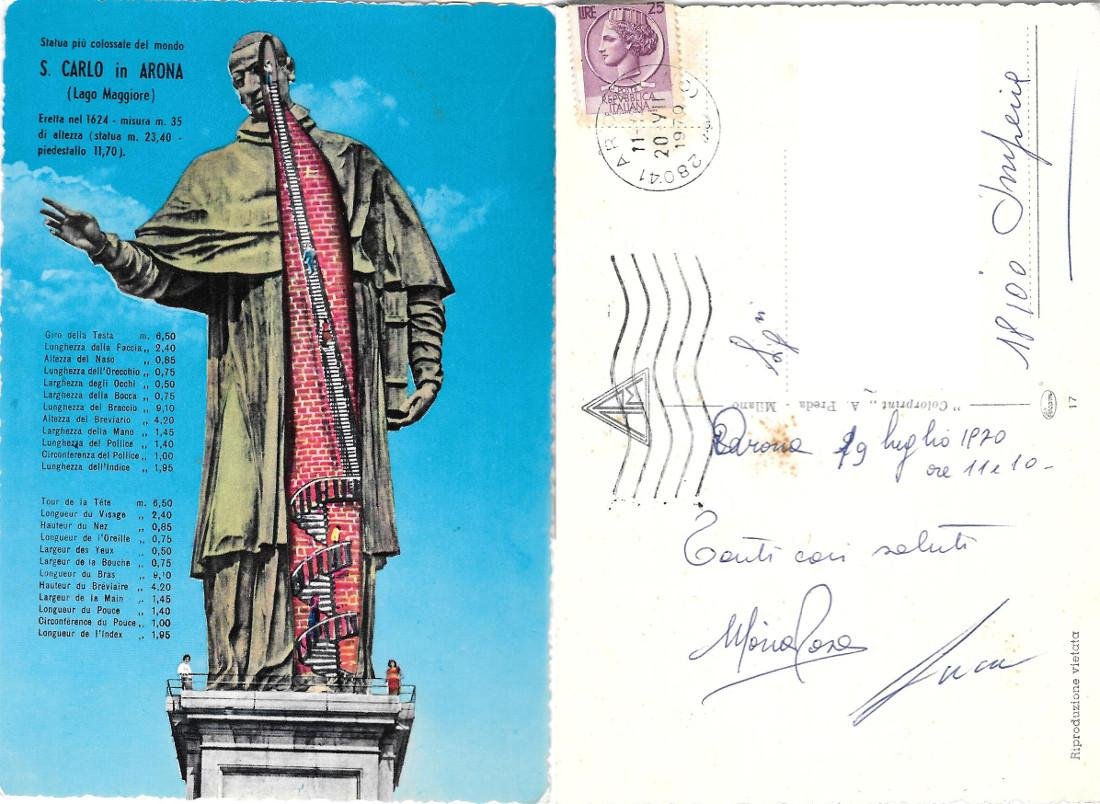 Statua più colossale del mondo
S. CARLO in ARONA
(Lago Maggiore)
Eretta nel 1624 - misura m. 35
di altezza (statua m. 23,40 -
piedestallo 11,70).
Giro della Testa m. 6,50
Lunghezza della Faccia ,, 2,40
Altezza del Naso ,, 0,85
Lunghezza dell'Orecchio ,, 0,75
Larghezza degli Occhi ,, 0,50
Larghezza della Bocca ,, 0,75
Lunghezza del Braccio ,, 9,10
Altezza del Breviario ,, 4,20
Larghezza della Mano ,, 1,45
Lunghezza del Pollice ,, 1,40
Circonferenza del Pollice ,, 1,00
Lunghezza dell'Indice ,, 1,95
Tour de la Tête m. 6,50
Longueur du Visage ,, 2,40
Hauteur du Nez ,, 0,85
Longueur de l'Oreille ,, 0,75
Largeur des Yeux ,, 0,50
Largeur de la Bouche ,, 0,75
Longueur du Bras ,, 9,10
Hauteur du Bréviaire ,, 4.20
Largeur de la Main ,, 1,45
Longueur du Pouce ,, 1,40
Circonférence du Pouce ,, 1,00
Longueur de l'Index ,, 1,95
LIRE 25
POSTE
REPVBBLICA
ITALIANA
28041 AR
11-
20 VII
1970
18100 Imperia
"Colorprint,, A. Preda - Milano
17
Arona 19 luglio 1970
ore 11 e 10-
Tanti cari saluti
Maria Rosa
Luca
Riproduzione vietata